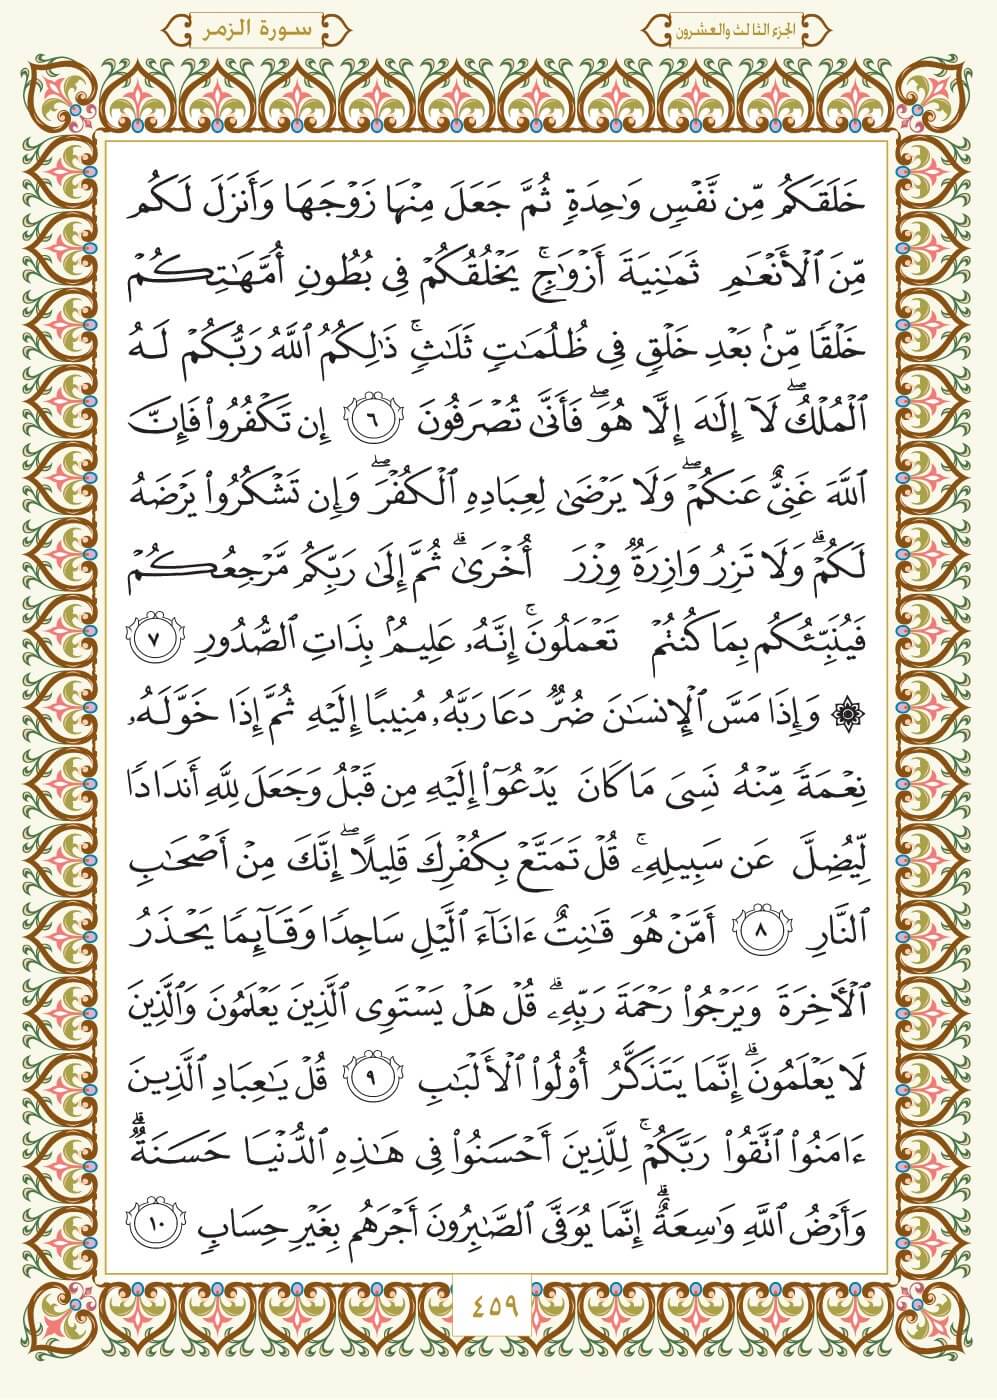 الجزء الثالث والعشرون
سورة الزمر
خَلَقَكُم مِّن نَّفْسٍ وَٰحِدَةٍ ثُمَّ جَعَلَ مِنْهَا زَوْجَهَا وَأَنزَلَ لَكُم
مِّنَ ٱلْأَنْعَٰمِ ثَمَٰنِيَةَ أَزْوَٰجٍۚ يَخْلُقُكُمْ فِى بُطُونِ أُمَّهَٰتِكُمْ
خَلْقًا مِّنۢ بَعْدِ خَلْقٍ فِى ظُلُمَٰتٍ ثَلَٰثٍۚ ذَٰلِكُمُ ٱللَّهُ رَبُّكُمْ لَهُ
ٱلْمُلْكُۖ لَآ إِلَٰهَ إِلَّا هُوَۖ فَأَنَّىٰ تُصْرَفُونَ ٦ إِن تَكْفُرُوا۟ فَإِنَّ
ٱللَّهَ غَنِىٌّ عَنكُمْۖ وَلَا يَرْضَىٰ لِعِبَادِهِ ٱلْكُفْرَۖ وَإِن تَشْكُرُوا۟ يَرْضَهُ
لَكُمْۗ وَلَا تَزِرُ وَازِرَةٌ وِزْرَ أُخْرَىٰۗ ثُمَّ إِلَىٰ رَبِّكُم مَّرْجِعُكُمْ
فَيُنَبِّئُكُم بِمَا كُنتُمْ تَعْمَلُونَۚ إِنَّهُۥ عَلِيمٌۢ بِذَاتِ ٱلصُّدُورِ ٧
۞ وَإِذَا مَسَّ ٱلْإِنسَٰنَ ضُرٌّ دَعَا رَبَّهُۥ مُنِيبًا إِلَيْهِ ثُمَّ إِذَا خَوَّلَهُۥ
نِعْمَةً مِّنْهُ نَسِىَ مَا كَانَ يَدْعُوٓا۟ إِلَيْهِ مِن قَبْلُ وَجَعَلَ لِلَّهِ أَندَادًا
لِّيُضِلَّ عَن سَبِيلِهِۦۚ قُلْ تَمَتَّعْ بِكُفْرِكَ قَلِيلًاۖ إِنَّكَ مِنْ أَصْحَٰبِ
ٱلنَّارِ ٨ أَمَّنْ هُوَ قَٰنِتٌ ءَانَآءَ ٱلَّيْلِ سَاجِدًا وَقَآئِمًا يَحْذَرُ
ٱلْءَاخِرَةَ وَيَرْجُوا۟ رَحْمَةَ رَبِّهِۦۗ قُلْ هَلْ يَسْتَوِى ٱلَّذِينَ يَعْلَمُونَ وَٱلَّذِينَ
لَا يَعْلَمُونَۗ إِنَّمَا يَتَذَكَّرُ أُو۟لُوا۟ ٱلْأَلْبَٰبِ ٩ قُلْ يَٰعِبَادِ ٱلَّذِينَ
ءَامَنُوا۟ ٱتَّقُوا۟ رَبَّكُمْۚ لِلَّذِينَ أَحْسَنُوا۟ فِى هَٰذِهِ ٱلدُّنْيَا حَسَنَةٌۗ
وَأَرْضُ ٱللَّهِ وَٰسِعَةٌۗ إِنَّمَا يُوَفَّى ٱلصَّٰبِرُونَ أَجْرَهُم بِغَيْرِ حِسَابٍ ١٠
٤٥٩